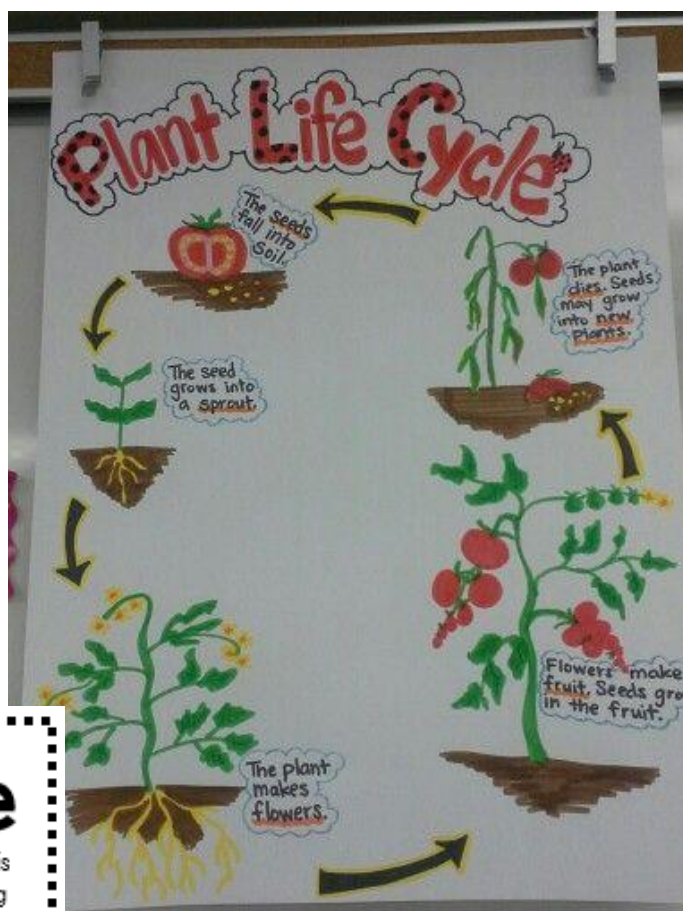 Plant Life Cycle
The seeds
fall into
Soil.
The seed
grows into
a sprout.
The plant
makes
flowers.
Flowers make
fruit. Seeds gro
in the fruit.
The plant
dies. Seeds
may grow
into new
Plants.
e
is
g